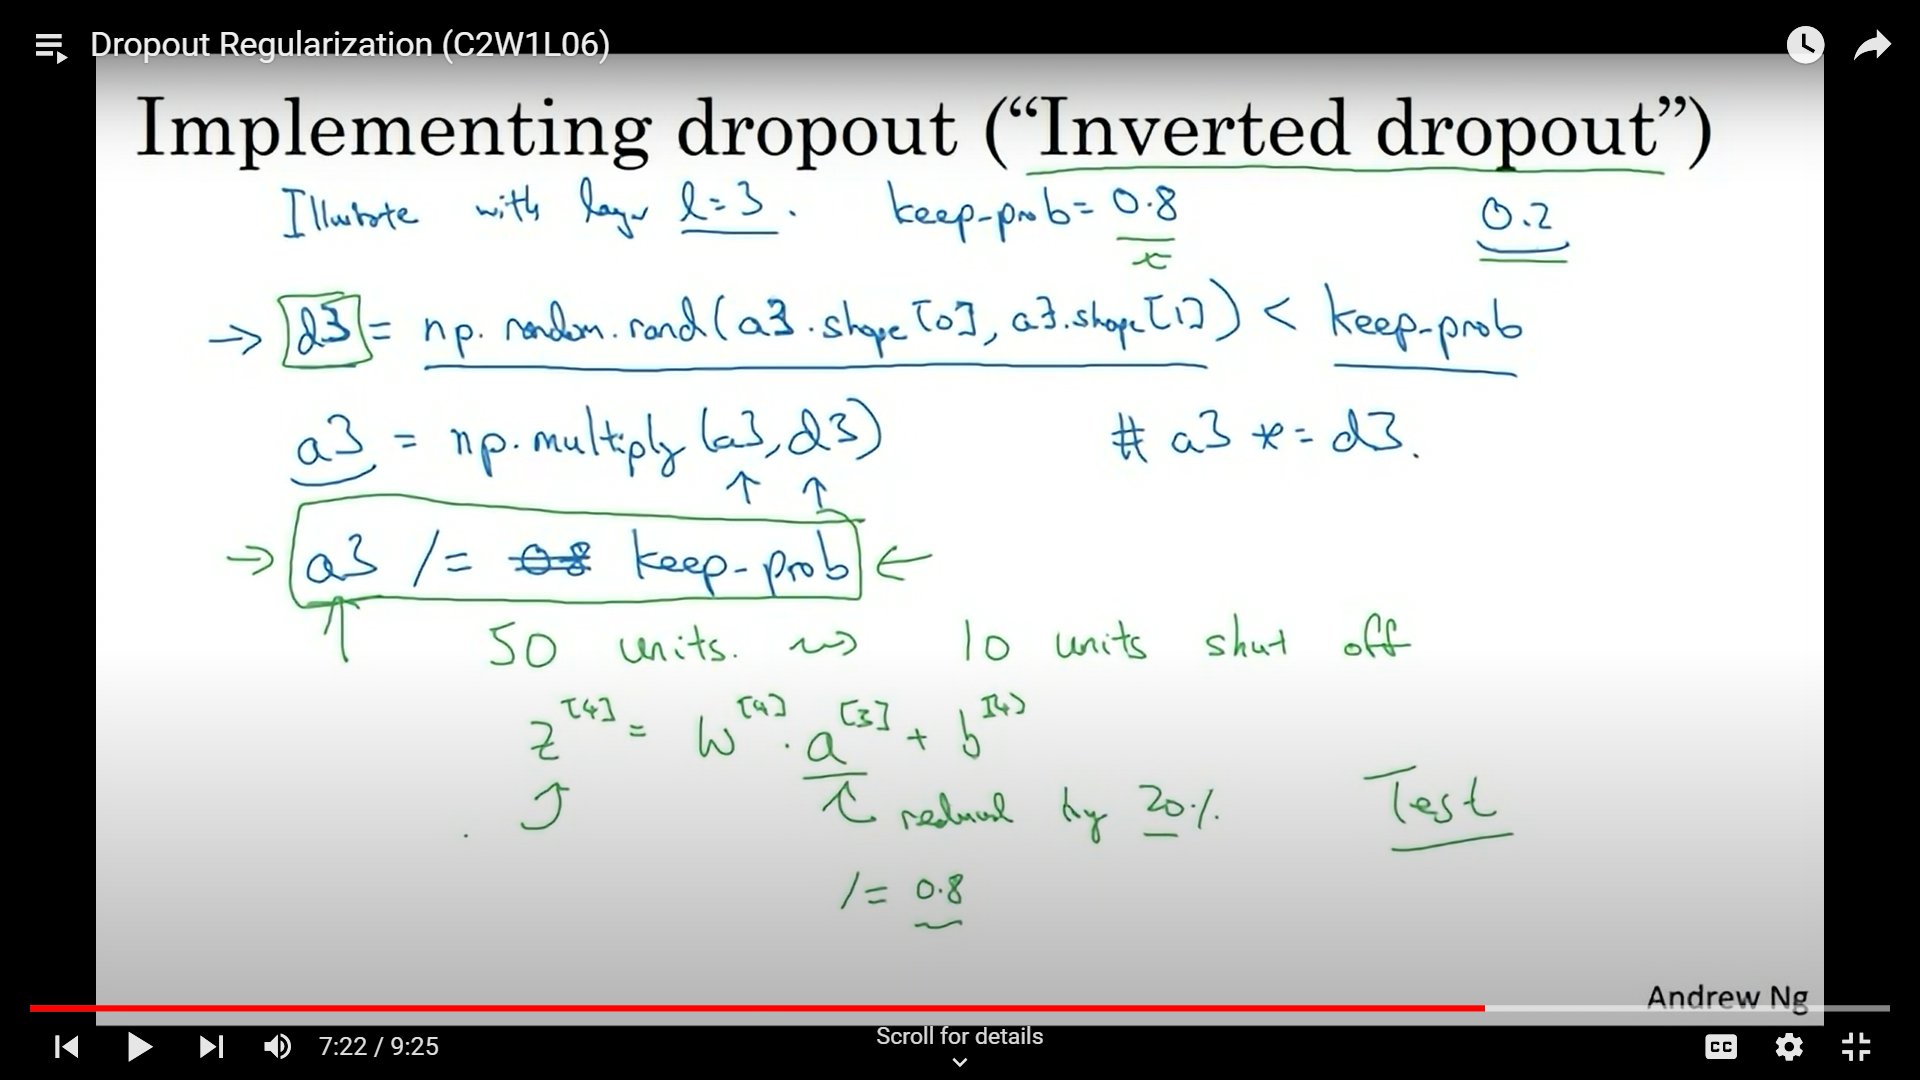 Dropout Regularization (C2W1L06)
Implementing dropout (“Inverted dropout”)
Illustrate with layer l=3. keep-prob= 0.8 0.2
→ d3 = np.random.rand(a3.shape[0], a3.shape[1]) < keep-prob
a3 = np.multiply(a3, d3) # a3 *= d3.
→ a3 /= 0.8 keep-prob ←
50 units. ⇝ 10 units shut off
z[4] = W[4] · a[3] + b[4]
reduced by 20%. Test
/= 0.8
Andrew Ng
Scroll for details
7:22 / 9:25
CC